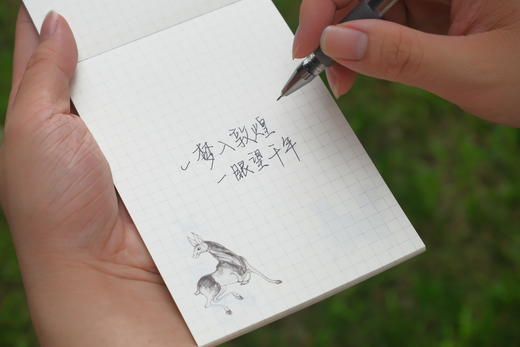 梦入敦煌
一眼望千年